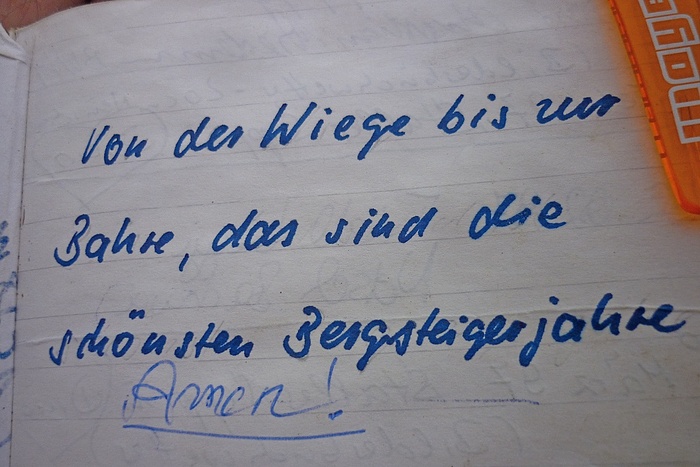 Von der Wiege bis zur
Bahre, das sind die
schönsten Bergsteigerjahre
Amen!